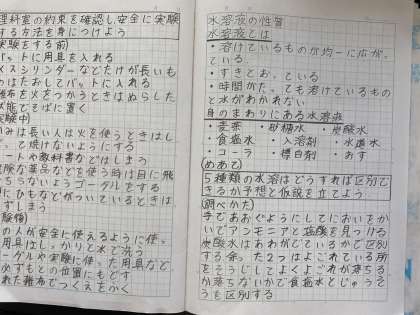 理科室の約束を確認し安全に実験
する方法を身につけよう
実験をする前)
バットに用具を入れる
メスシリンダーなどたけが長いも
のはたおしてバットに入れる
雑布を火をつかうときはぬらした
状態でそばに置く
実験中)
かみは長い人は火を使うときはし
って焼けないようにする
ノートや教科書などはしまう
危険な薬品などを使う時は目に飛
ちらないようゴーグルをする
にひもなどがついているときは
すしまう
実験後)
の人が安全に使えるように使っ
用具はしっかりと水で洗う
ゴーグルや実験に使った用具など
必ずもとの位置にもどす
れた雑布でつくえをふく
水溶液の性質
水溶液とは
・溶けているものが均一に広がっ
ている
・すきとおっている
・時間がたっても溶けているもの
と水がわかれない
身のまわりにある水溶液
・麦茶 ・砂糖水 ・炭酸水
・食塩水 ・入浴剤 ・水道水
・コーラ ・標白剤 ・おす
(めあて)
5種類の水溶はどうすれば区別で
きるか予想と仮説を立てよう
(調べかた)
手であおぐようにしてにおいをか
いでアンモニアと塩酸を見つける
炭酸水はあわがでているかで区別
する余った2つはよごれている所
をそうじしてよくよごれが落ちる
か落ちないかで食塩水とじゅうそ
うを区別する